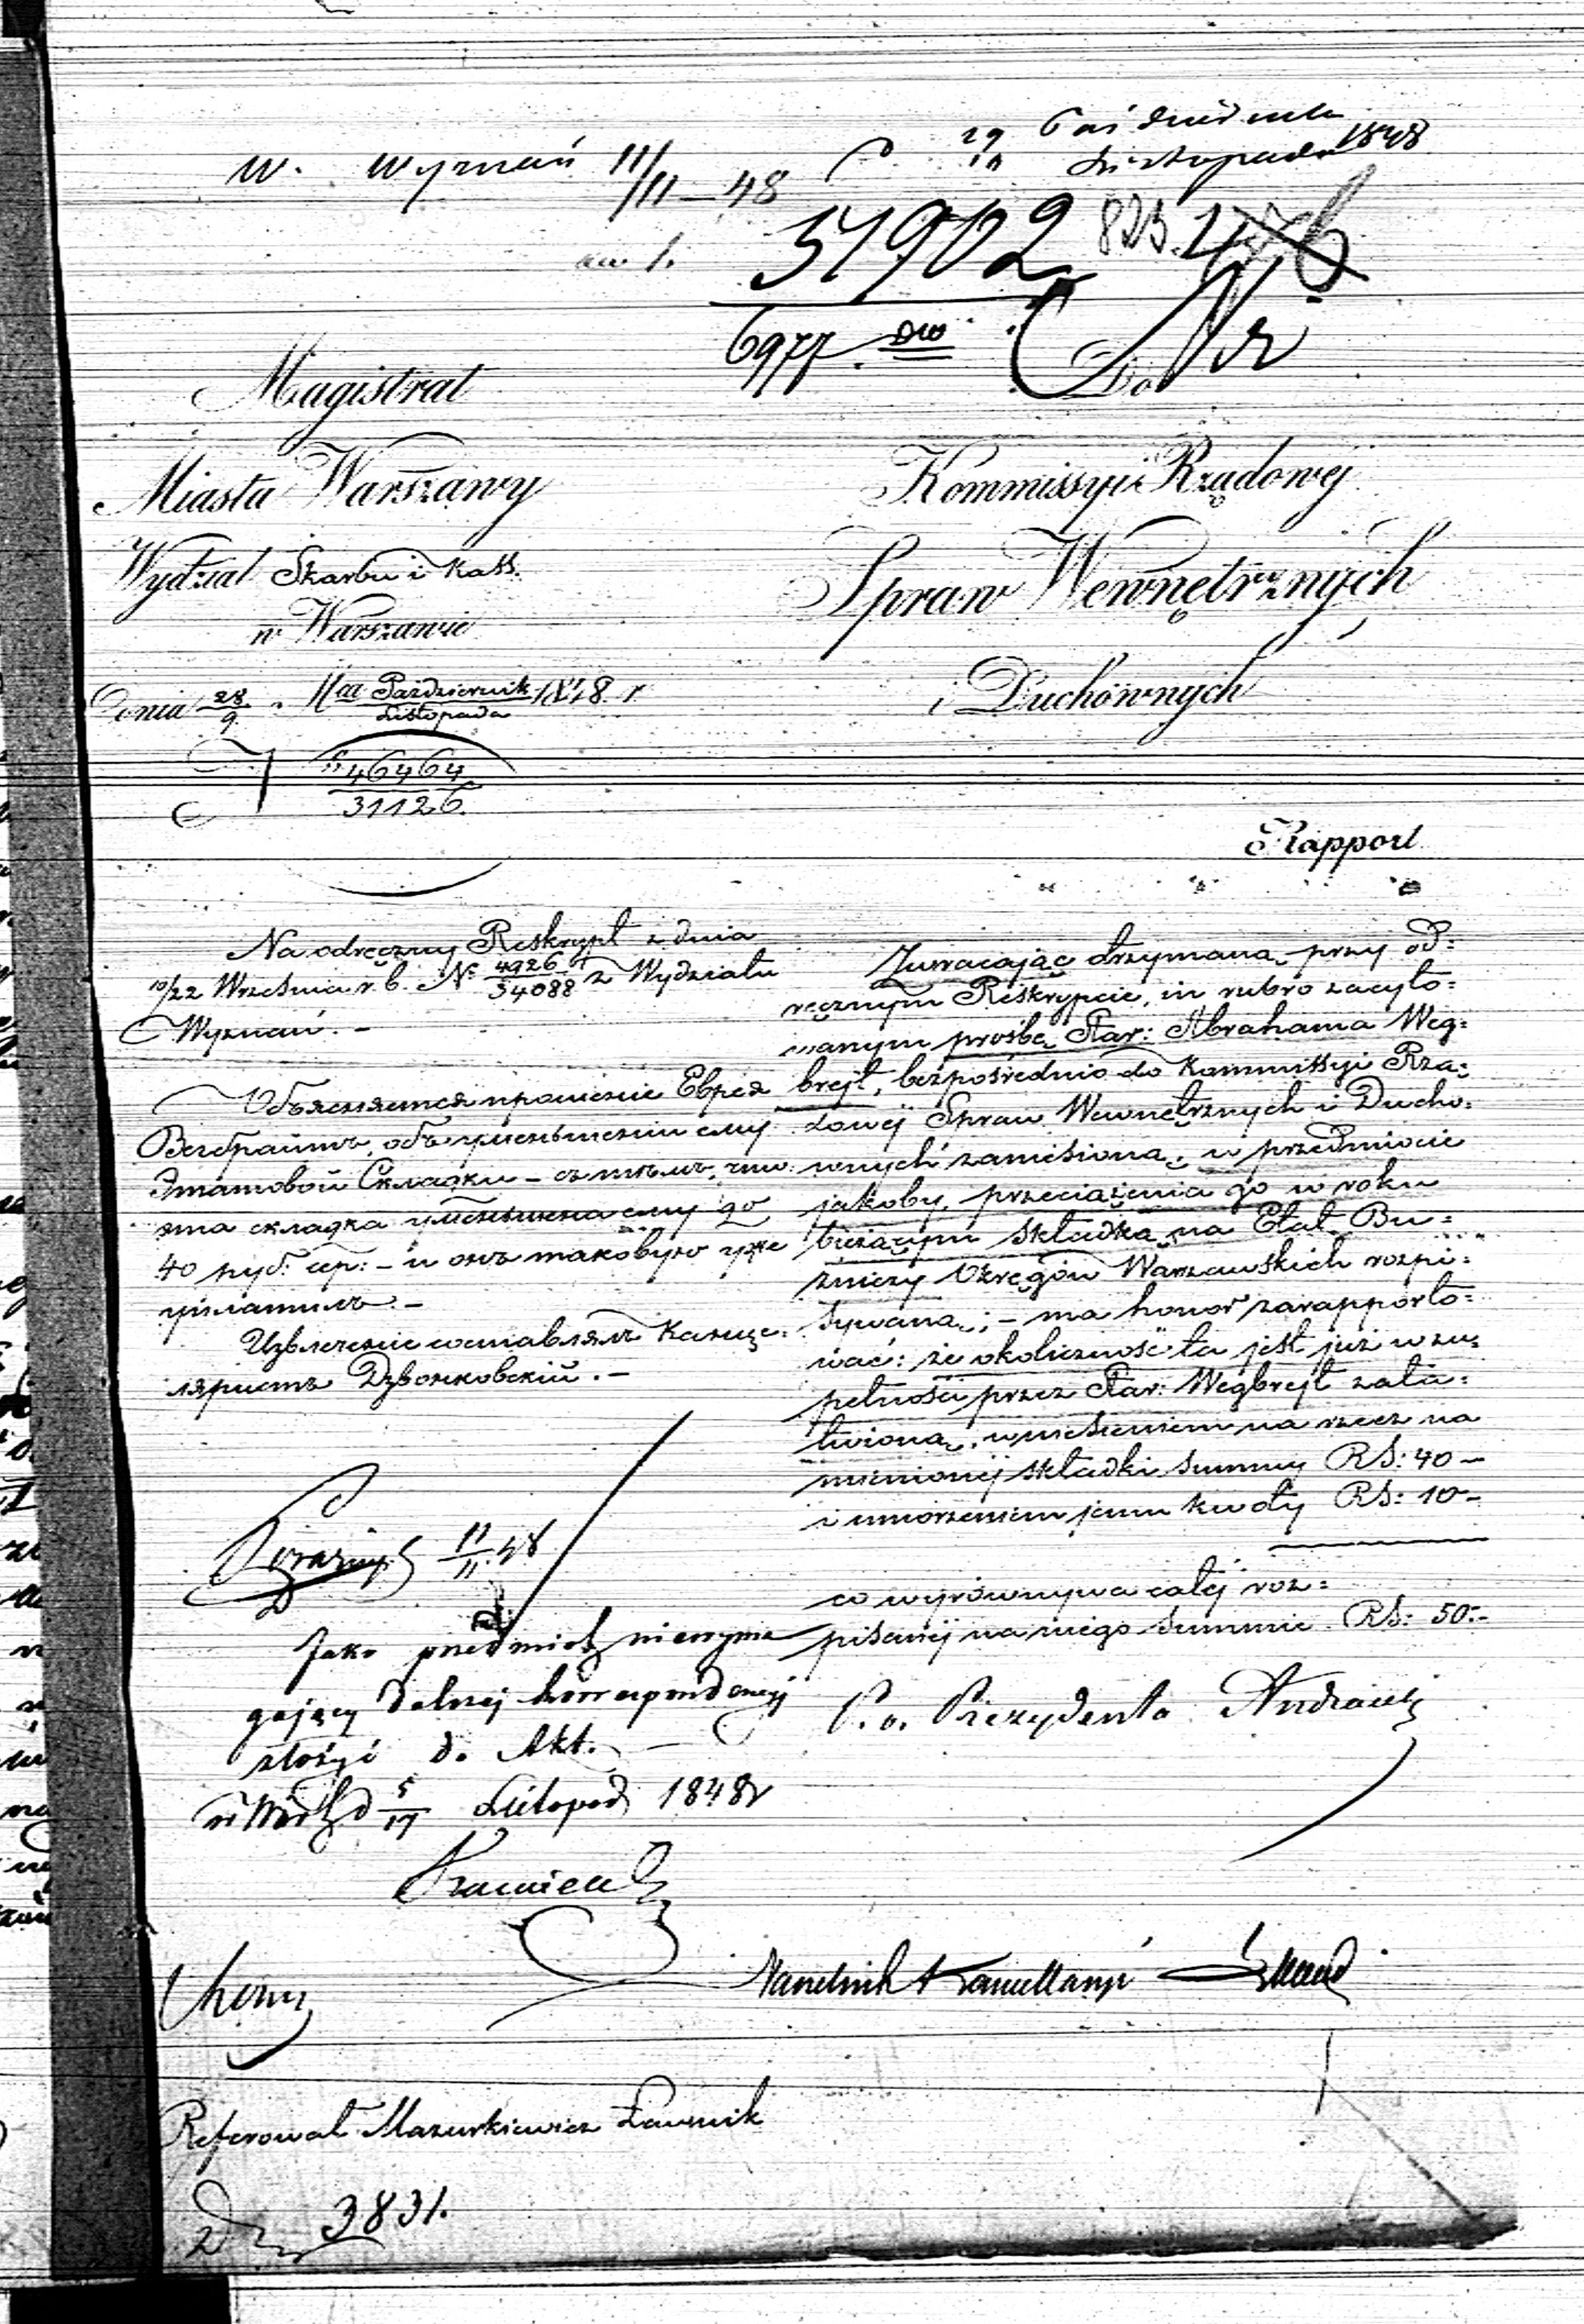 W. Wyznań 11/11 – 48
29 Października
10 Listopada 1848
31902
6977
Do
Magistrat
Miasta Warszawy
Wydział Skarbu i Kass.
w Warszawie
Dnia 28/9 Października/Listopada 1848 r
N 46464
31126.
Kommissyi Rządowej
Spraw Wewnętrznych
i Duchownych
Rapport
Na odręczny Reskrypt z dnia
10/22 Września r. b. N: 4926/34088 z Wydziału
Wyznań. –
Объясняется прошение Еврея
Вегбрайтъ, объ уменьшении ему
Этатовой Складки – съ тѣмъ, что
эта складка уменьшена ему до
40 руб: сер: – и онъ таковую уже
уплатилъ. –
Извлечение составлялъ Канце:
ляристъ Дзвонковскій. –
Zwracając otrzymaną przy od:
ręcznym Reskrypcie, in rubro zacyto:
wanym prośbę Star: Abrahama Weg:
brejt, bezpośrednio do Kommissyi Rzą:
dowej Spraw Wewnętrznych i Ducho:
wnych zaniesioną; w przedmiocie
jakoby przeciążenia go w roku
bieżącym składką na Etat Bu:
żniczy Okręgów Warszawskich rozpi:
sywaną; – ma honor zarapporto:
wać: że okoliczność ta jest już w zu:
pełności przez Star: Wegbrejt zała:
twioną, wniesieniem na rzecz na
mienionej składki summy RS: 40 –
i umorzeniem jemu kwoty RS: 10 –
co wyrównywa całej roz:
pisanej na niego summie RS: 50: –
P. o. Prezydenta
11/11 48
Jako przedmiot niewyma
gający dalszej korrespondencyi
złożyć do Akt. –
d 5/17 Listopad 1848 r
Naczelnik Kancellaryi
Referował Mazurkiewicz Ławnik
3831.